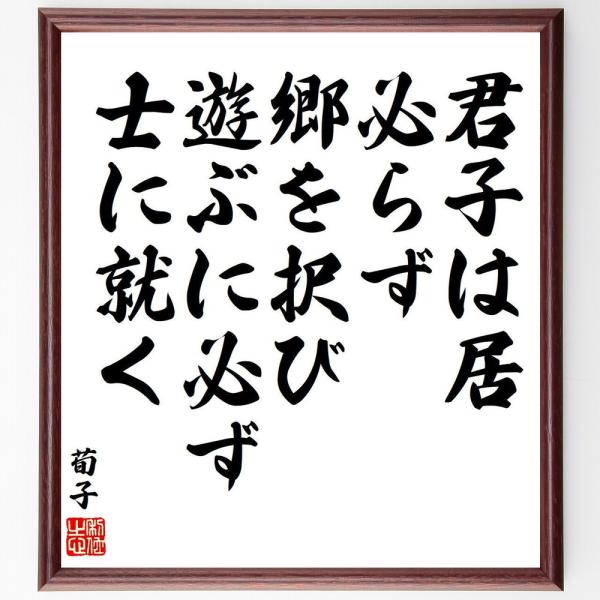 君子は居
必らず
郷を択び
遊ぶに必ず
士に就く
荀子